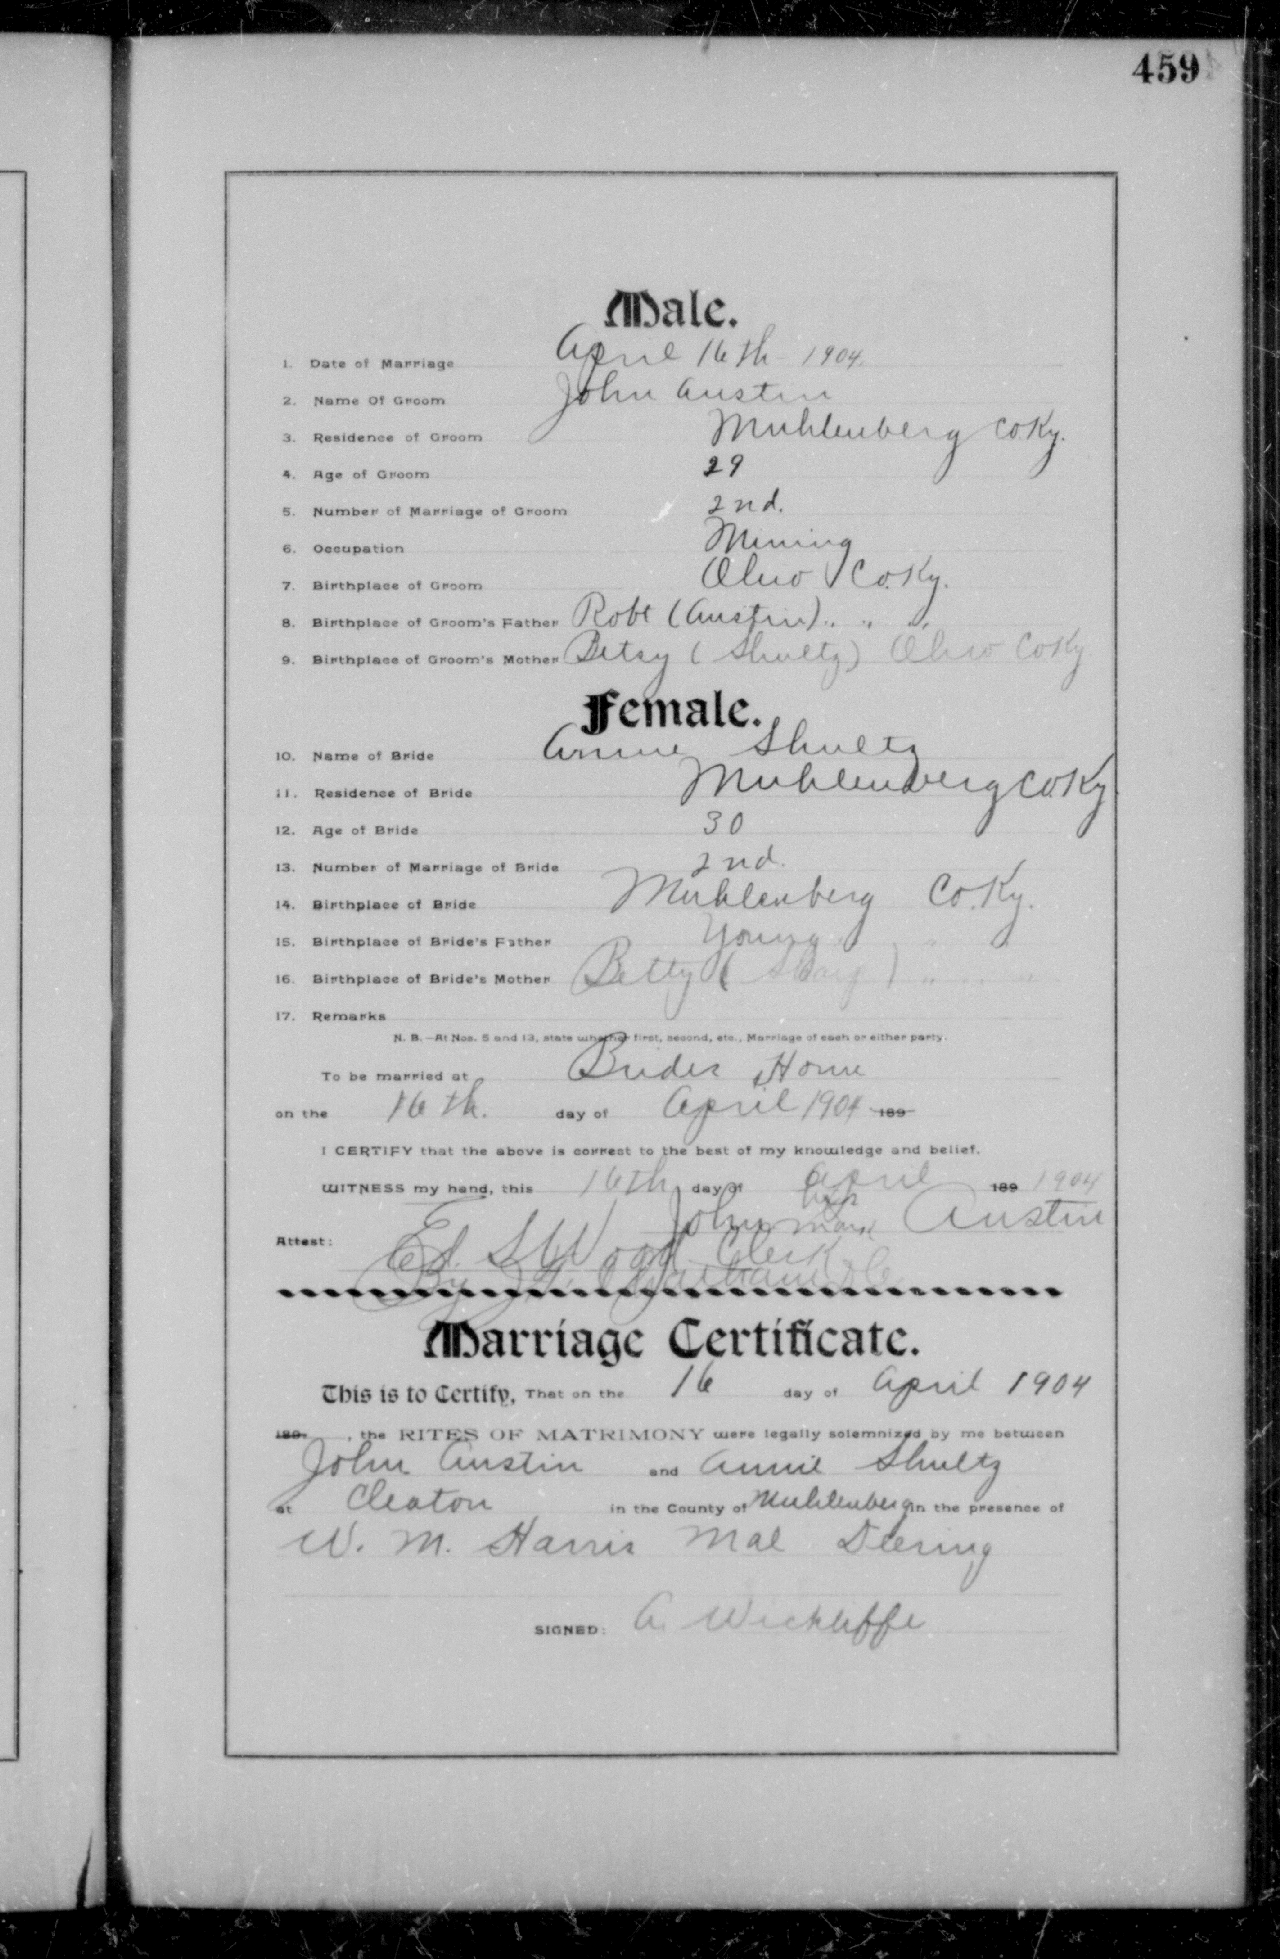 459
Male.
1. Date of Marriage April 16th 1904.
2. Name Of Groom John Austin
3. Residence of Groom Muhlenberg Co Ky.
4. Age of Groom 29
5. Number of Marriage of Groom 2nd.
6. Occupation Mining
7. Birthplace of Groom Ohio Co. Ky.
8. Birthplace of Groom's Father Robt (Austin) " " "
9. Birthplace of Groom's Mother Betsy (Shultz) Ohio Co Ky
Female.
10. Name of Bride Annie Shultz
11. Residence of Bride Muhlenberg Co. Ky
12. Age of Bride 30
13. Number of Marriage of Bride 2nd.
14. Birthplace of Bride Muhlenberg Co. Ky.
15. Birthplace of Bride's Father Young " "
16. Birthplace of Bride's Mother Betty ( ) " "
17. Remarks
N. B.—At Nos. 5 and 13, state whether first, second, etc., Marriage of each or either party.
To be married at Brides Home
on the 16th. day of April 1904 189
I CERTIFY that the above is correct to the best of my knowledge and belief.
WITNESS my hand, this 16th day of April 189 1904
John his x mark Austin
Attest: Ed. S. Wood Clerk
By
Marriage Certificate.
This is to Certify, That on the 16 day of April 1904
189 , the RITES OF MATRIMONY were legally solemnized by me between
John Austin and Annie Shultz
at Cleaton in the County of Muhlenberg in the presence of
W. M. Harris Mal Deering
SIGNED: A. Wickliffe